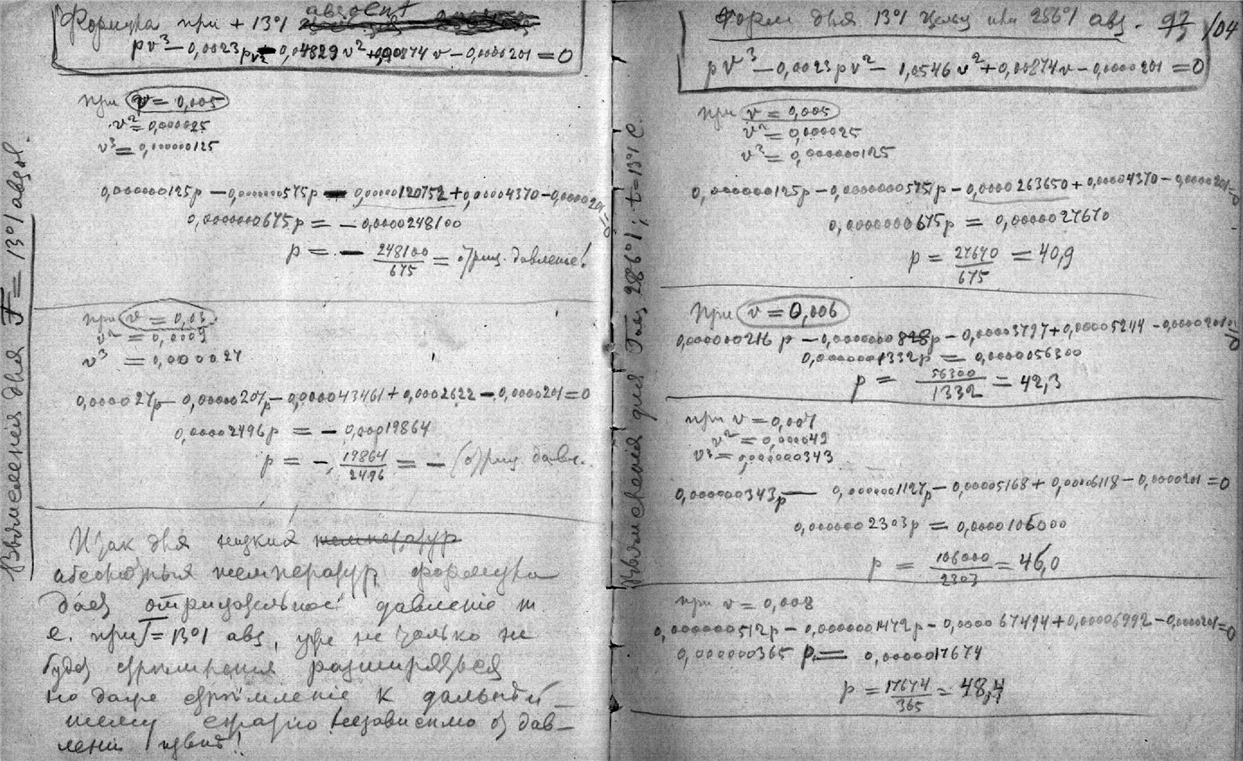 Формула при + 13°1 абсолют
pv³ — 0,0023pv² — 0,04829 v² + 0,00874 v — 0,0000201 = 0
при v = 0,005
v² = 0,000025
v³ = 0,000000125
0,000000125p — 0,0000000575p — 0,00000120752 + 0,00004370 — 0,0000201 = 0
0,0000000675p = — 0,0000248100
p = — 248100/675 = отриц. давленіе!
при v = 0,03
v² = 0,0009
v³ = 0,000027
0,000027p — 0,00000207p — 0,000043461 + 0,0002622 — 0,0000201 = 0
0,00002496p = — 0,00019864
p = —, 19864/2496 = — (отриц. давл.
Итак для низких температур
абсолютныя температур формула
дает отрицательное давленіе т
е. при T = 13°1 abs, уже не только не
будет стремления разширяться
но даже стремленіе к дальней—
шему сжатію независимо от дав—
лени извне!
Вычисления для T = 13°1 абсол.
для 13°1 или 286°1 abs. 93 /04
pv³ — 0,0023pv² — 1,0546 v² + 0,00874v — 0,0000201 = 0
при v = 0,005
v² = 0,000025
v³ = 0,000000125
0,000000125p — 0,0000000575p — 0,0000263650 + 0,00004370 — 0,0000201 = 0
0,0000000675p = 0,0000027670
p = 27670/675 = 40,9
При v = 0,006
0,000000216p — 0,0000000828p — 0,00003797 + 0,00005244 — 0,0000201 = 0
0,0000001332p = 0,0000056300
p = 56300/1332 = 42,3
при v = 0,007
v² = 0,000049
v³ = 0,000000343
0,000000343p — 0,0000001127p — 0,00005168 + 0,00006118 — 0,0000201 = 0
0,0000002303p = 0,0000106000
p = 106000/2303 = 46,0
при v = 0,008
0,000000512p — 0,0000001472p — 0,000067494 + 0,00006992 — 0,0000201 = 0
0,000000365 p = 0,000017674
p = 17674/365 = 48,4
Вычисления для 286°1; t = 13°1 C.